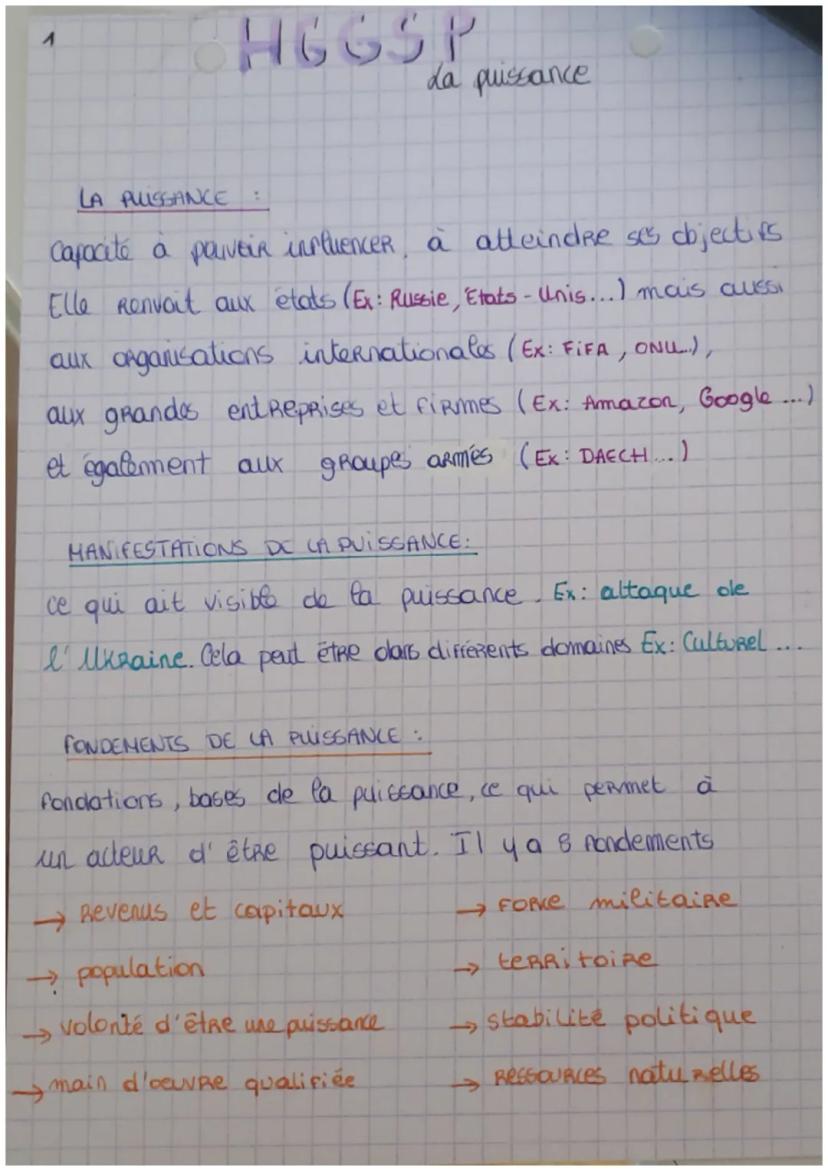 1
HGGSP
La puissance
LA PUISSANCE :
Capacité à pouvoir influencer, à atteindre ses objectifs
Elle renvoit aux états (Ex: Russie, Etats-Unis...) mais aussi
aux organisations internationales (Ex: FiFA, ONU...),
aux grandes entreprises et firmes (Ex: Amazon, Google ...)
et également aux groupes armés (Ex: DAECH...)
MANIFESTATIONS DE LA PUISSANCE:
ce qui ait visible de la puissance. Ex: attaque de
l'Ukraine. Cela peut être dans différents domaines Ex: Culturel ...
FONDEMENTS DE LA PUISSANCE :
fondations, bases de la puissance, ce qui permet à
un acteur d'être puissant. Il y a 8 fondements
→ Revenus et capitaux → FORCE militaire
→ population → territoire
→ volonté d'être une puissance → stabilité politique
→ main d'oeuvre qualifiée → Ressources naturelles